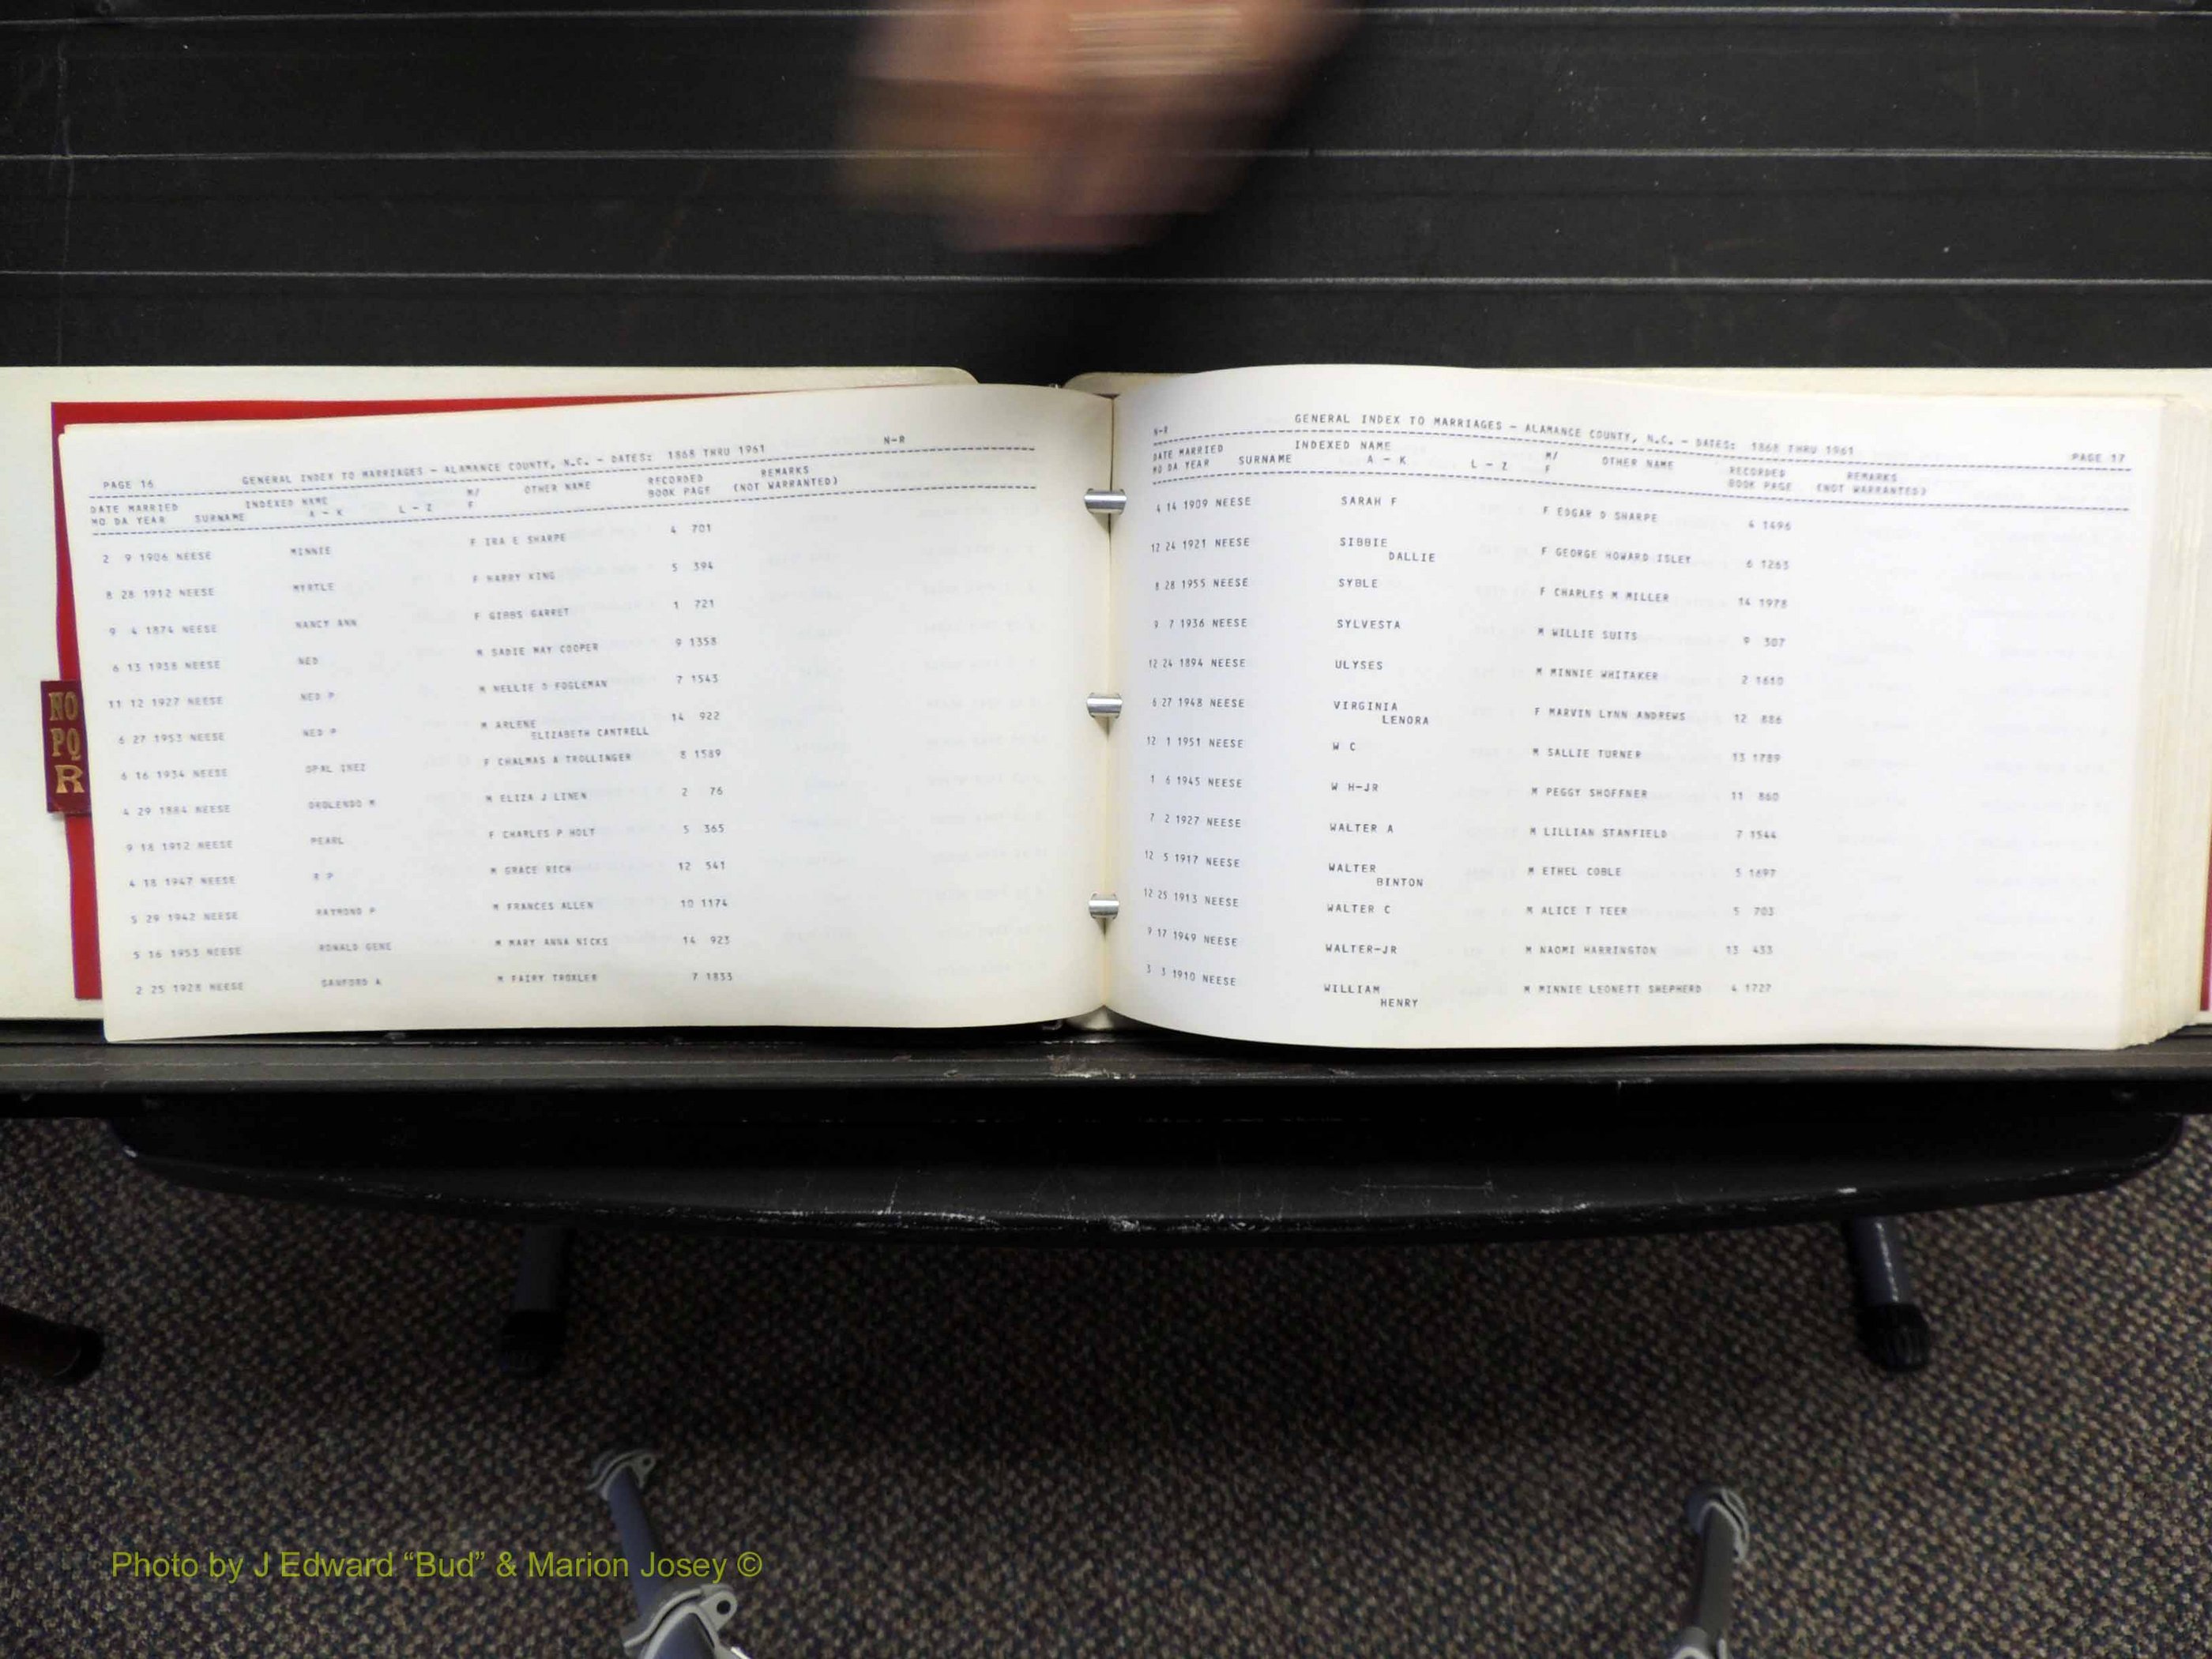 NO
PQ
R
PAGE 16 GENERAL INDEX TO MARRIAGES - ALAMANCE COUNTY, N.C. - DATES: 1868 THRU 1961 N-R
DATE MARRIED INDEXED NAME M/ OTHER NAME RECORDED REMARKS
MO DA YEAR SURNAME A - K L - Z F BOOK PAGE (NOT WARRANTED)
2 9 1906 NEESE MINNIE F IRA E SHARPE 4 701
8 28 1912 NEESE MYRTLE F HARRY KING 5 394
9 4 1874 NEESE NANCY ANN F GIBBS GARRET 1 721
6 13 1938 NEESE NED M SADIE MAY COOPER 9 1358
11 12 1927 NEESE NED P M NELLIE D FOGLEMAN 7 1543
6 27 1953 NEESE NED P M ARLENE 14 922
ELIZABETH CANTRELL
6 16 1934 NEESE OPAL INEZ F CHALMAS A TROLLINGER 8 1589
4 29 1884 NEESE OROLENDO M M ELIZA J LINEN 2 76
9 18 1912 NEESE PEARL F CHARLES P HOLT 5 365
4 18 1947 NEESE R P M GRACE RICH 12 541
5 29 1942 NEESE RAYMOND P M FRANCES ALLEN 10 1174
5 16 1953 NEESE RONALD GENE M MARY ANNA NICKS 14 923
2 25 1928 NEESE SANFORD A M FAIRY TROXLER 7 1833
N-R GENERAL INDEX TO MARRIAGES - ALAMANCE COUNTY, N.C. - DATES: 1868 THRU 1961 PAGE 17
DATE MARRIED INDEXED NAME M/ OTHER NAME RECORDED REMARKS
MO DA YEAR SURNAME A - K L - Z F BOOK PAGE (NOT WARRANTED)
4 14 1909 NEESE SARAH F F EDGAR D SHARPE 4 1496
12 24 1921 NEESE SIBBIE F GEORGE HOWARD ISLEY 6 1263
DALLIE
8 28 1955 NEESE SYBLE F CHARLES M MILLER 14 1978
9 7 1936 NEESE SYLVESTA M WILLIE SUITS 9 307
12 24 1894 NEESE ULYSES M MINNIE WHITAKER 2 1610
6 27 1948 NEESE VIRGINIA F MARVIN LYNN ANDREWS 12 886
LENORA
12 1 1951 NEESE W C M SALLIE TURNER 13 1789
1 6 1945 NEESE W H-JR M PEGGY SHOFFNER 11 860
7 2 1927 NEESE WALTER A M LILLIAN STANFIELD 7 1544
12 5 1917 NEESE WALTER M ETHEL COBLE 5 1697
BINTON
12 25 1913 NEESE WALTER C M ALICE T TEER 5 703
9 17 1949 NEESE WALTER-JR M NAOMI HARRINGTON 13 433
3 3 1910 NEESE WILLIAM M MINNIE LEONETT SHEPHERD 4 1727
HENRY
Photo by J Edward “Bud” & Marion Josey ©